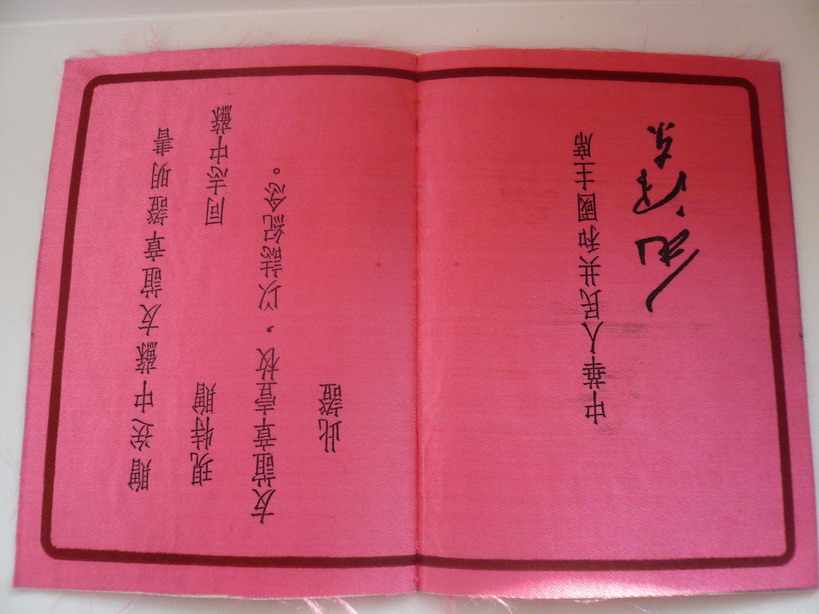 贈送中蘇友誼章證明書
現特贈　　　同志中蘇
友誼章壹枚，以誌紀念。
此證
中華人民共和國主席
毛泽东